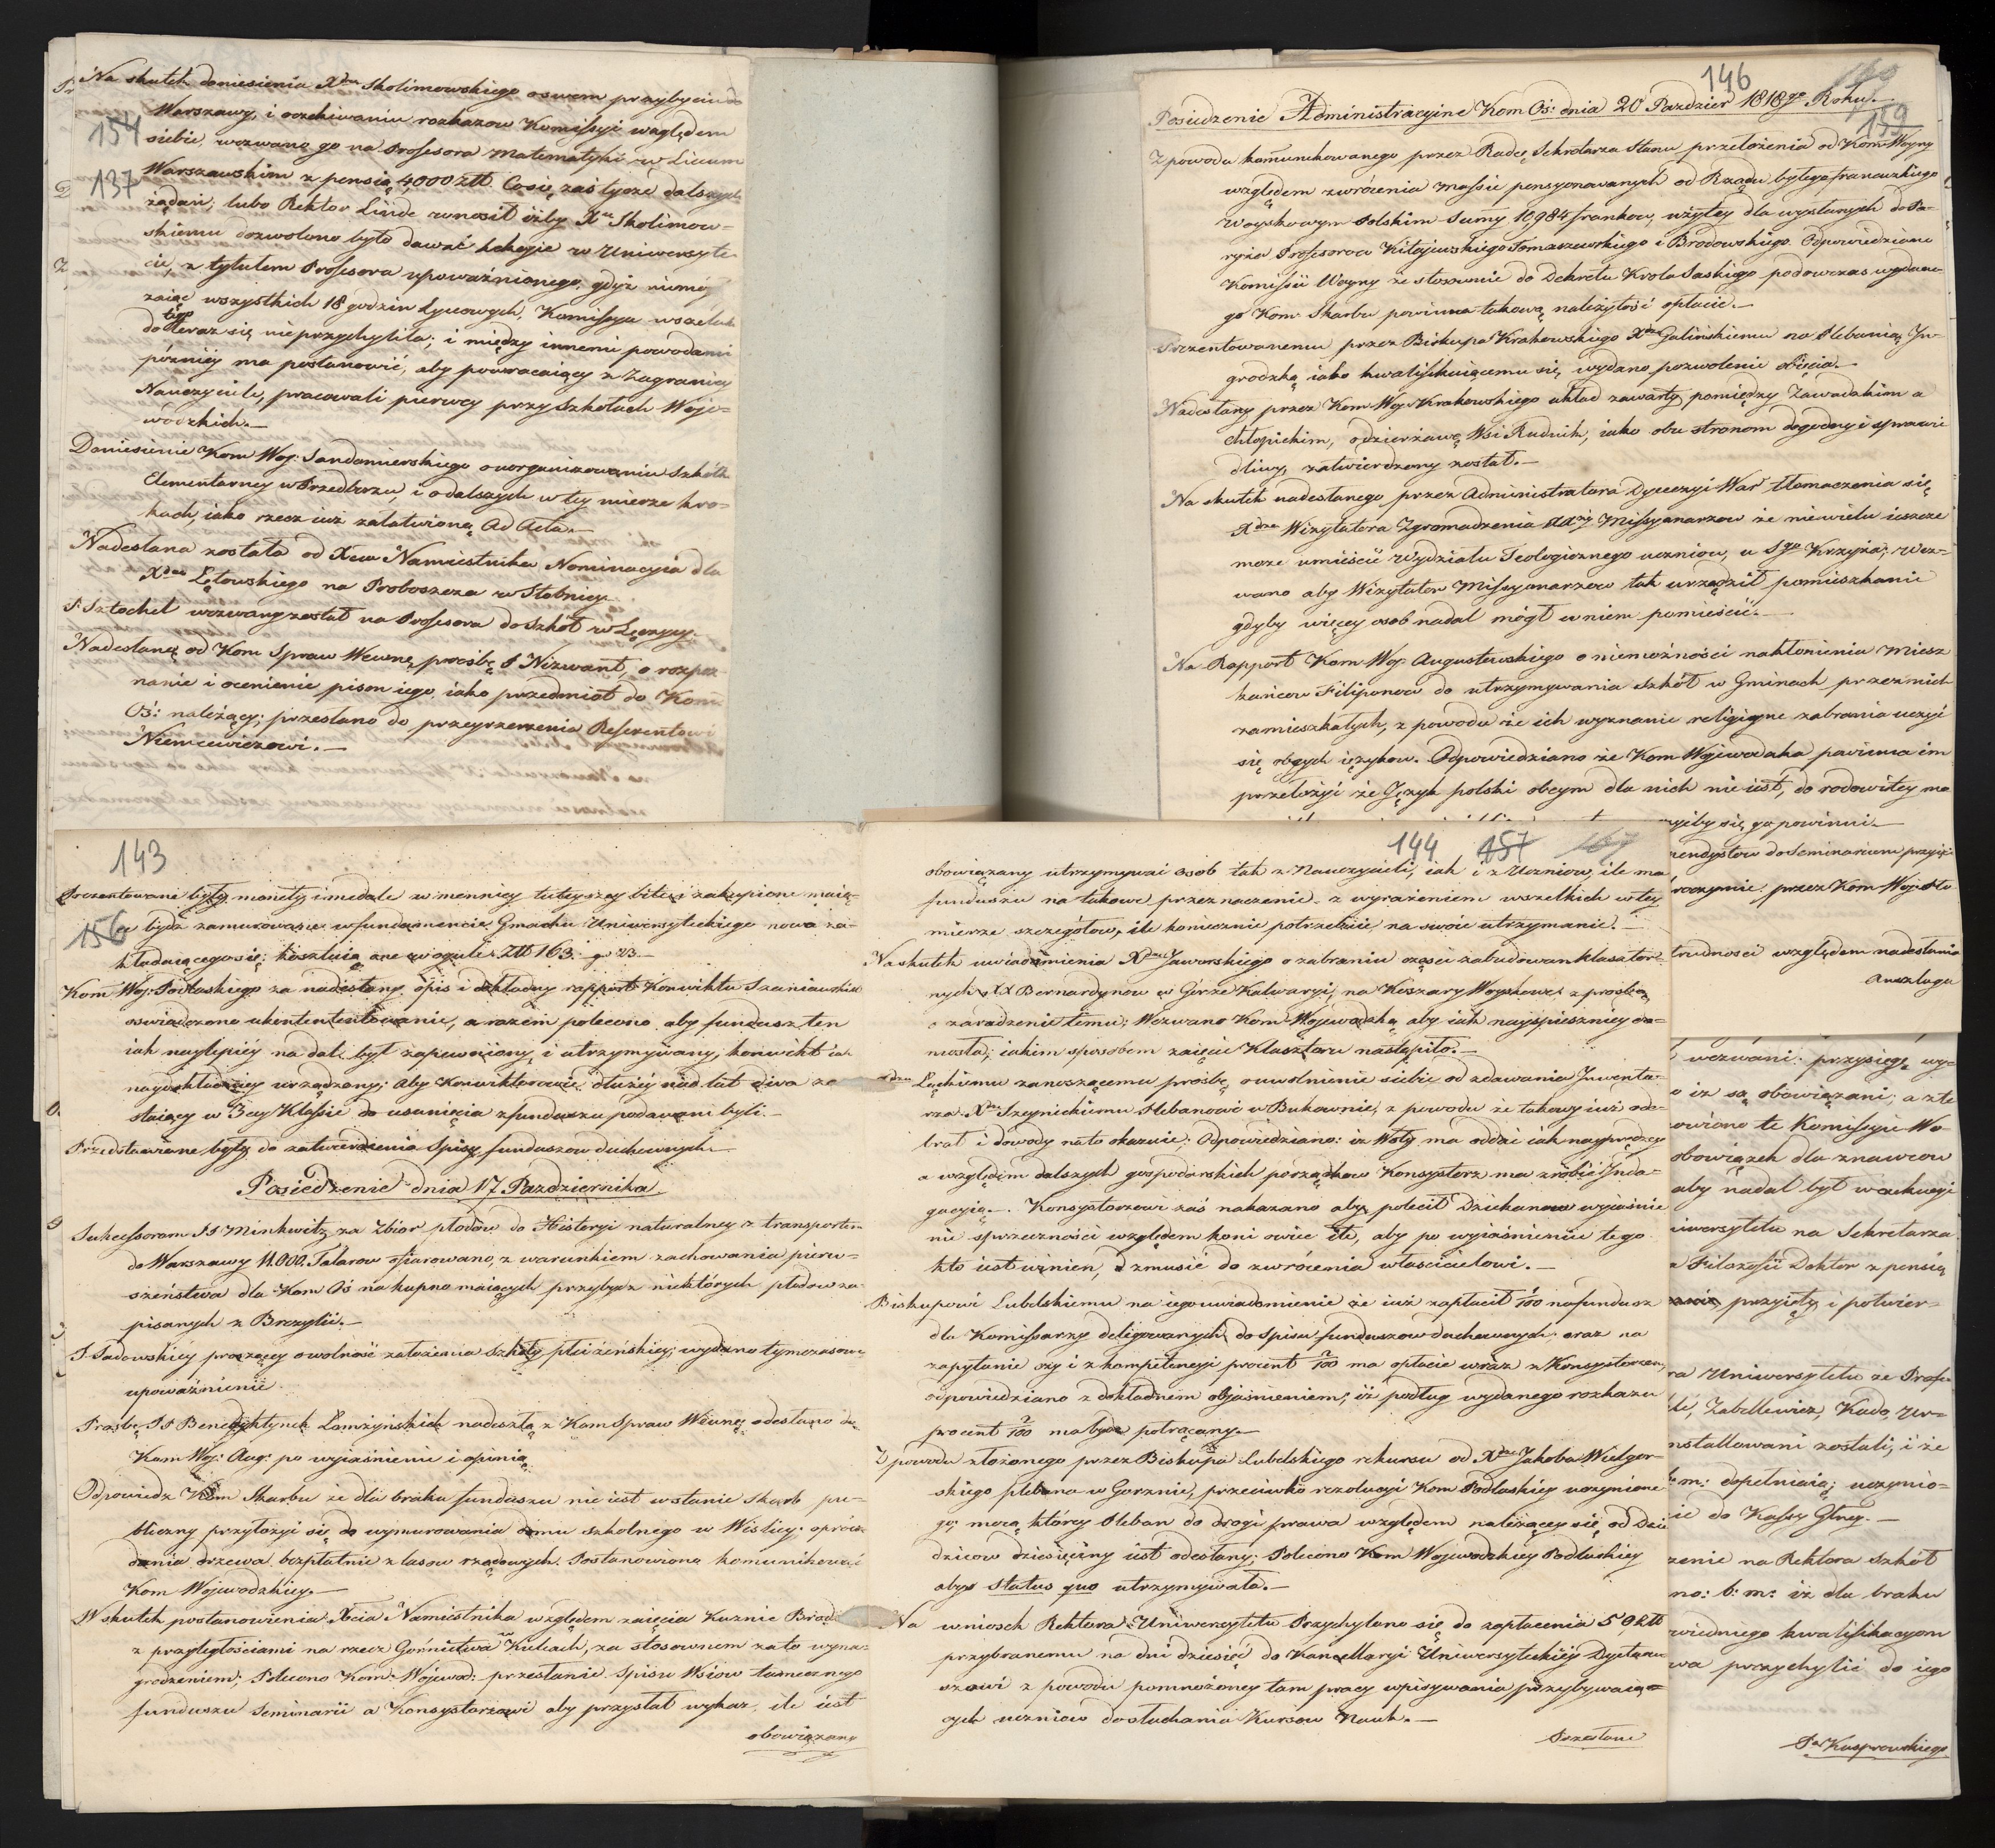 Na skutek doniesienia Xdza Skolimowskiego o swem przybyciu do
154
Warszawy, i oczekiwaniu rozkazow Komissyi względem
siebie, wezwano go na Professora Matematyki w Liceum
137
Warszawskim z pensią 4,000 złt. Co się zaś tycze dalszych
żądań, lubo Rektor Linde wnosił iżby Xdzu Skolimow=
skiemu dozwolono było dawać lekcyie w Uniwersyte
cie, z tytułem Professora upoważnionego, gdyż niemoż
zaiąć wszystkich 18 godzin Lyceowych, Komissya wszelak
do tego teraz się nieprzychyliła; i między innemi powodami
późniey ma postanowić, aby powracaiący z Zagranicy
Nauczyciele, pracowali pierwey przy Szkołach Woje=
wódzkich.—
Doniesienie Kom Woj: Sandomierskiego o uorganizowaniu Szkółki
Elementarney w Przedborzu, i o dalszych w tey mierze kro=
kach, iako rzecz iuż załatwioną Ad Acta.—
Nadesłana została od Xcia Namiestnika Nominacyia dla
Xdza Łętowskiego na Proboszcza w Stobnicy.
P. Sztochel wezwany został na Professora do Szkół w Łęczycy.
Nadesłaną od Kom Spraw Wewnę, prośbę P Nizwant, o rozpoz=
nanie i ocenienie pism iego, iako przedmiot do Kom
Oś: należący; przesłano do przeyrzenia Referentowi
Niemcewiczowi.—
146
159
Posiedzenie Administracyine Kom Oś: dnia 20 Paździer 1818go Roku.—
Z powodu komunikowanego przez Radcę Sekretarza Stanu przełożenia od Kom Woyny
względem zwrócenia Massie pensyonowanych od Rządu byłego francuzkiego
Woyskowym Polskim Sumy 10,984 frankow, użytey dla wysłanych do Pa=
ryża Professorow Kitajewskiego Tomaszewskiego i Brodowskiego. Odpowiedziano
Komissii Woyny że stosownie do Dekretu Krola Saskiego podowczas wydane=
go Kom Skarbu powinna takową należytość opłacić.—
Prezentowanemu przez Biskupa Krakowskiego Xdzu Galińskiemu na Plebanią In=
grodzką iako kwalifikuiącemu się, wydano pozwolenie obięcia.—
Nadesłany przez Kom Woj Krakowskiego układ zawarty pomiędzy Zawadzkim a
Chłopickim, o dzierżawę Wsi Rudnik, iako obu stronom dogodny i sprawie
dliwy, zatwierdzony został.—
Na skutek nadesłanego przez Administratora Dyecezyi War tłomaczenia się
Xdza Wizytatora Zgromadzenia XXży Missyonarzow że niewielu ieszcze
może umieścić Wydziału Teologicznego uczniow, u Sgo Krzyża; Wez=
wano aby Wizytator Missyonarzow tak urządził pomieszkanie
gdyby więcey osob nadal mógł w niem pomieścić.—
Na Rapport Kom Woj: Augustowskiego o niemożności nakłonienia miesz
kańcow Filiponow do utrzymywania Szkół w Gminach przez nich
zamieszkałych, z powodu że ich wyznanie religiyne zabrania uczyć
się obcych ięzykow. Odpowiedziano że Kom Wojewodzka powinna im
przełożyć że Język polski obcym dla nich nie iest, do rodowitey mo
yiby się go powinni.—
endystow do Seminarium przyię
roczymie przez Kom Wojewo
trudności względem nadesłania
Anszługu
143
Prezentowane były monety i medale w mennicy tuteyszey bite, i zakupione maią=
156
ce bydź zamurowane w fundamencie Gmachu Uniwersyteckiego nowo za=
kładaiącego się; kosztuią one w ogule Złt 163. gr 23.—
Kom Woj: Podlaskiego za nadesłany opis i dokładny rapport Konwiktu Szaniawskie
oświadczono ukontentowanie, a razem polecono aby fundusz ten
iak naylepiey na dal był zapewniony i utrzymywany, konwikt iak
naydokładniey urządzony; Aby Konwiktorowie dłużey nad lat dwa zo
staiący w 3ciey Klassie do usunięcia z funduszu podawani byli.—
Przedstawiane były do zatwierdzenia Spisy funduszow duchownych.—
Posiedzenie dnia 17 Października
Sukcessorom JP Minkwitz za Zbior płodow do Historyi naturalney z transportem
do Warszawy 11.000 Talarow ofiarowano, z warunkiem zachowania pierw=
szeństwa dla Kom Oś na kupno maiących przybydz niektórych płodow za=
pisanych z Brezylii.—
P. Sadowskiey proszącey o wolność założenia Szkoły płci żeńskiey; wydano tymczasowe
upoważnienie.
Prośbę PP Benedyktynek Łomżyńskich nadeszłą z Kom Spraw Wewnę odesłano do
Kom Woj: Aug: po wyiaśnienie i opinią.
Odpowiedz Kom Skarbu że dla braku funduszu nie iest w stanie Skarb pu=
bliczny przyłożyć się do wymurowania domu szkolnego w Wislicy; oprócz
dania drzewa bezpłatnie z lasow rządowych. Postanowiono komunikować
Kom Wojewodzkiey.—
W skutek postanowienia Xcia Namiestnika względem zaięcia Kuznic Brod
z przyległościami na rzecz Gornictwa w Kielcach, za stosownem za to wyna=
grodzeniem; Polecono Kom: Wojewod: przesłanie Spisu Wsiow tamecznego
funduszu Seminarii a Konsystorzowi aby przysłał wykaz, ile iest
obowiązany
144 157
obowiązany utrzymywać osob tak z Nauczycieli, iak i z Uczniow, ile ma
funduszu na takowe przeznaczenie z wyrażeniem wszelkich w tey
mierze szczegółow, ile koniecznie potrzebuie na swoie utrzymanie.—
Na skutek uwiadomienia Xdza Jaworskiego o zabraniu części zabudowan klasztor=
nych XX Bernardynow w Gorze Kalwaryi, na Koszary Woyskowe z prosbą
o zaradzenie temu; Wezwano Kom: Wojewodzką aby iak nayspieszniey do=
niosła, iakim sposobem zaięcie Klasztoru nastąpiło.—
Xdzu Łąckiemu zanoszącemu prośbę o uwolnienie siebie od zdawania Inwenta=
rza Xdzu Szeynickiemu Plebanowi w Bukownie, z powodu że takowy iuż ode=
brał i dowody na to okazuie; Odpowiedziano: iż Woły ma oddać iak nayprędzey
a względem dalszych gospodarskich porządkow Konsystorz ma zrobić Inda=
gacyią.—. Konsystorzowi zaś nakazano aby polecił Dziekanowi wyiaśnie
nie sprzeczności względem koni owiec ite, aby po wyiaśnieniu tego
kto iest winien, zmusić do zwrócenia właścicielowi.—
Biskupowi Lubelskiemu na iego uwiadomienie że iuż zapłacił 1/100 na fundusz
dla Komissarzy deligowanych do Spisu funduszow duchownych; oraz na
zapytanie czy i z kompetencyi procent 2/100 ma opłacić wraz z Konsystorzem,
odpowiedziano z dokładnem obiaśnieniem, iż podług wydanego rozkazu
procent 2/100 ma bydz potrącany.—
Z powodu złożonego przez Biskupa Lubelskiego rekursu od Xdza Jakoba Wielgor=
skiego plebana w Gorznie, przeciwko rezolucyi Kom Podlaskiey uczynione
go; mocą którey Pleban do drogi prawa względem należącey się od Dzie
dzicow dziesięciny iest odesłany; Polecono Kom Wojewodzkiey Podlaskiey
aby Status quo utrzymywała.—
Na wniosek Rektora Uniwersytetu Przychylono się do zapłacenia 50 złt
przybranemu na dni dziesięć do Kancellaryi Uniwersyteckiey Dyetaryu
szowi z powodu pomnożoney tam pracy wpisywania przybywaią=
cych uczniow do słuchania Kursow Nauk.—
Przesłane
wezwani: przysięgę wy=
o iż są obowiązani; a zte
owiono te Komissyie Wo=
obowiązek dla znawcow
aby nadal był w exekucyi
iwersytetu na Sekretarza
a Filozofii Doktor z pensią
przyięty i potwier=
ra Uniwersytetu że Profe
Zabellewicz, Kado, Ur=
nstallowani zostali, i że
m: dopełniaią; uczynio=
ie do Kassy Głney.—
zenie na Rektora szkół
no: b: m: iż dla braku
wiedniego kwalifikacyom
wa przychylić do iego
Pa Kasprowskiego